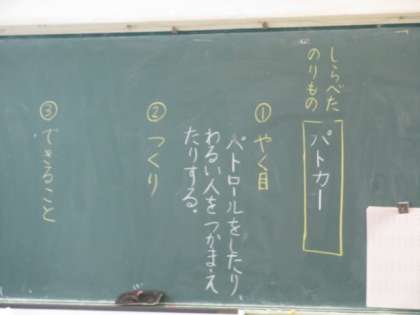 しらべた
のりもの
パトカー
① やく目
パトロールをしたり、
わるい人をつかまえ
たりする。
② つくり
③ できること